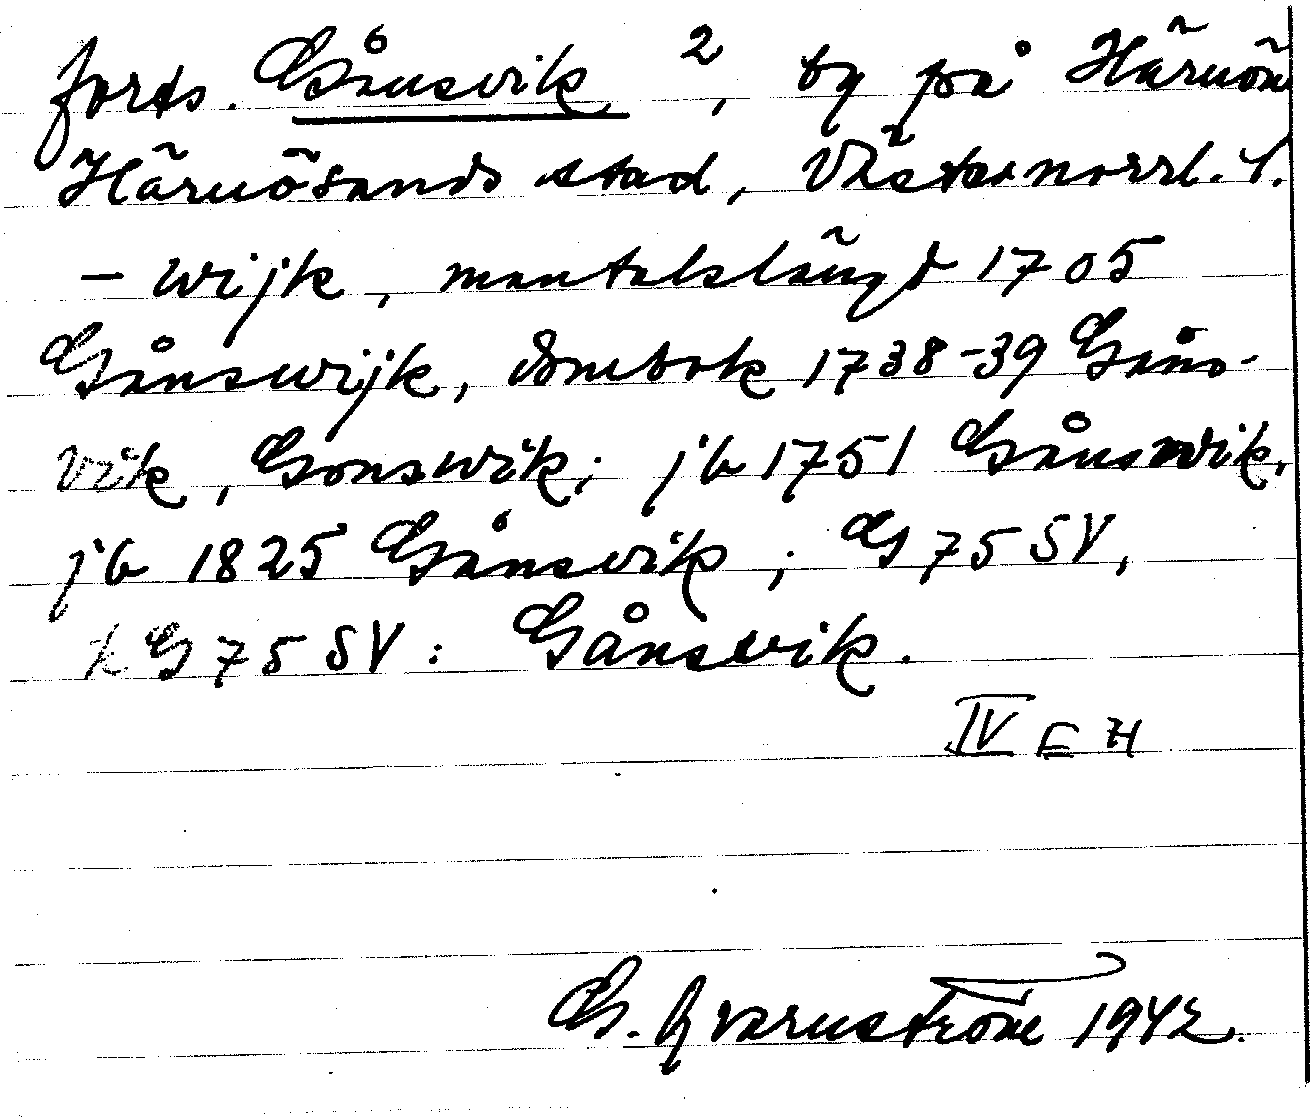 forts. Gånsvik 2, by på Härnön
Härnösands stad, Västernorrl. l.
- wijk, mantalslängd 1705
Gånswijk, dombok 1738-39 Gåns-
vik, Gonswik; jb 1751 Gånswik,
jb 1825 Gånsvik; G 75 SV,
k G 75 SV: Gånsvik.
IV E H
G. Qvarnström 1942.